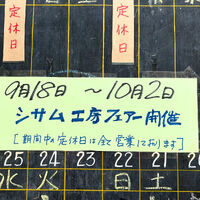 定休日
定休日
9月18日 〜10月2日
シサム工房フェアー開催
[期間中の定休日は全て営業しております]
25 24 23 22 21 20
水 火 日 土